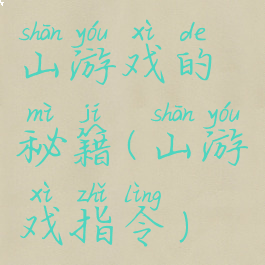 shān yóu xì de
山游戏的
mì jí shān yóu
秘籍(山游
xì zhǐ lìng
戏指令)